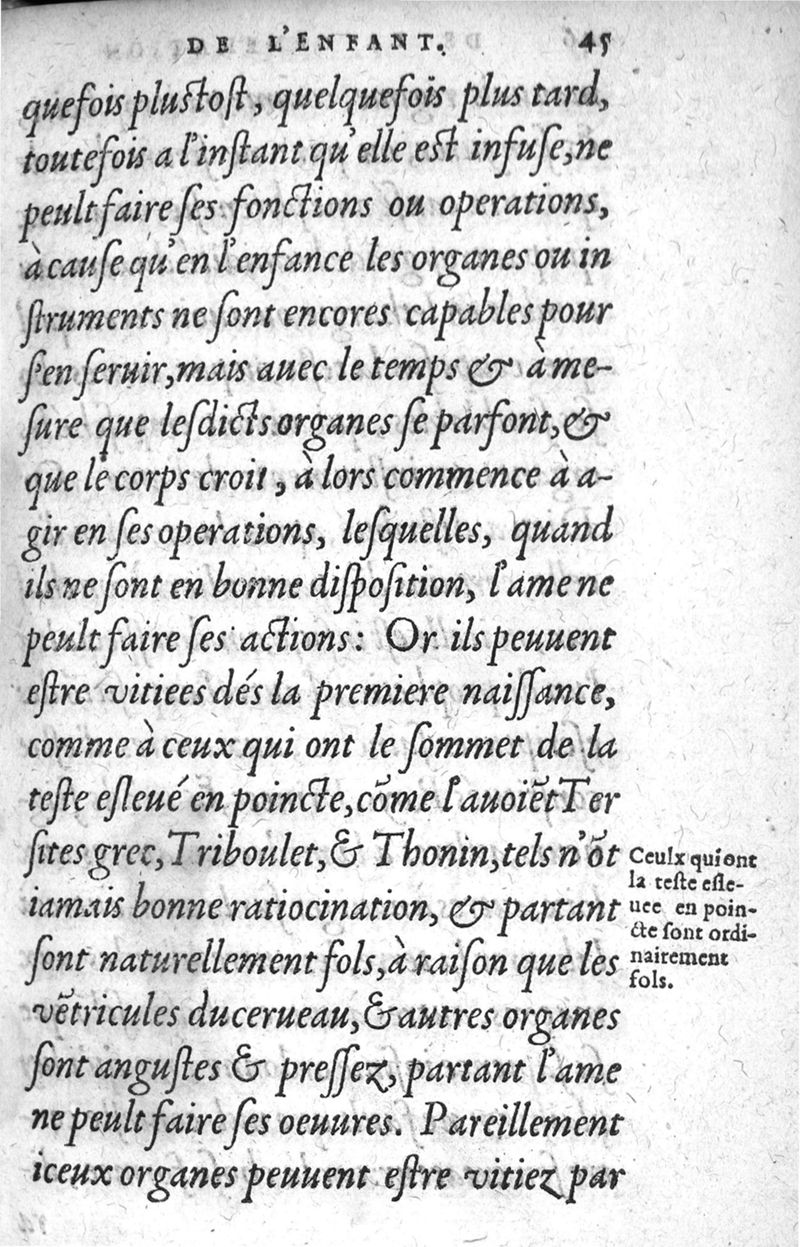 DE L'ENFANT. 45
quefois plustost, quelquefois plus tard,
toutefois a l'instant qu'elle est infuse, ne
peult faire ses fonctions ou operations,
à cause qu'en l'enfance les organes ou in
struments ne sont encores capables pour
s'en seruir, mais auec le temps & à me-
sure que lesdicts organes se parfont, &
que le corps croit, à lors commence à a-
gir en ses operations, lesquelles, quand
ils ne sont en bonne disposition, l'ame ne
peult faire ses actions: Or ils peuuent
estre vitiees dés la premiere naissance,
comme à ceux qui ont le sommet de la
teste esleué en poincte, cõme l'auoiẽt Ter
sites grec, Triboulet, & Thonin, tels n'õt
iamais bonne ratiocination, & partant
sont naturellement fols, à raison que les
vẽtricules du cerueau, & autres organes
sont angustes & pressez, partant l'ame
ne peult faire ses oeuures. Pareillement
iceux organes peuuent estre vitiez par
Ceulx qui ont
la teste esle-
uee en poin-
cte sont ordi-
nairement
fols.